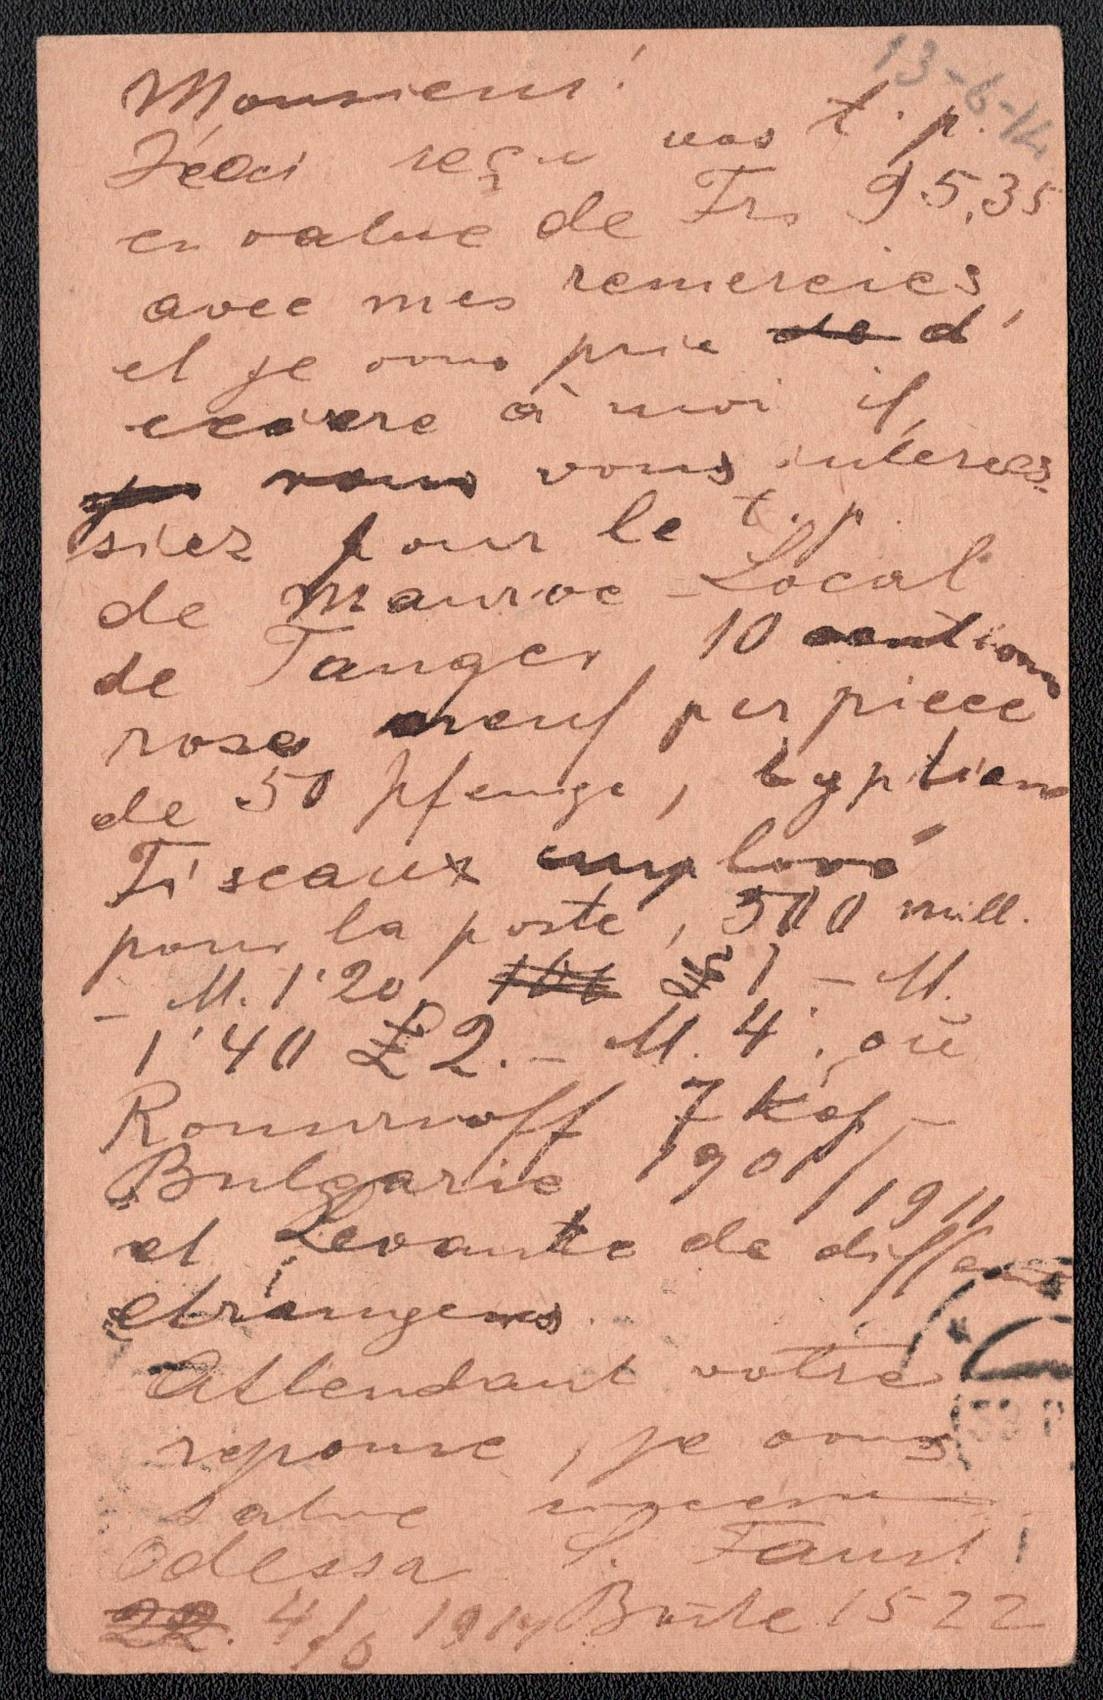 13-6-14
Monsieur!
J'eai reçu vos t. p.
en value de Frs 95,35
avec mes remercies,
et je vous prie de d'
ecrire à moi if
vous vous interes-
siez pour le t. p.
de Mauroc - Local
de Tanger, 10 centions
rose neuf per piece
de 50 pfenge, Egyptiens
Fiscaux employé
pour la poste, 500 mill.
- M. 1'20, 100 £ 1 - M.
1'40 £ 2. - M. 4'. où
Roumvoff 7 Kop -
Bulgarie 1901/1911
et Levante de diff
etrangeres.
Attendant votre
reponse, je vous
salue
Odessa S. Faust
22. 4/6 1914 Boite 1522